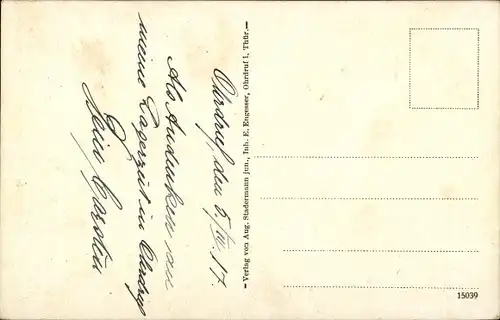 Ohrdruf, den 5./VII. 17.
Als Andenken an
meine Lagerzeit in Ohrdruf
Dein
— Verlag von Aug. Stadermann jun., Inh. E. Engesser, Ohrdruf i. Thür. —
15039